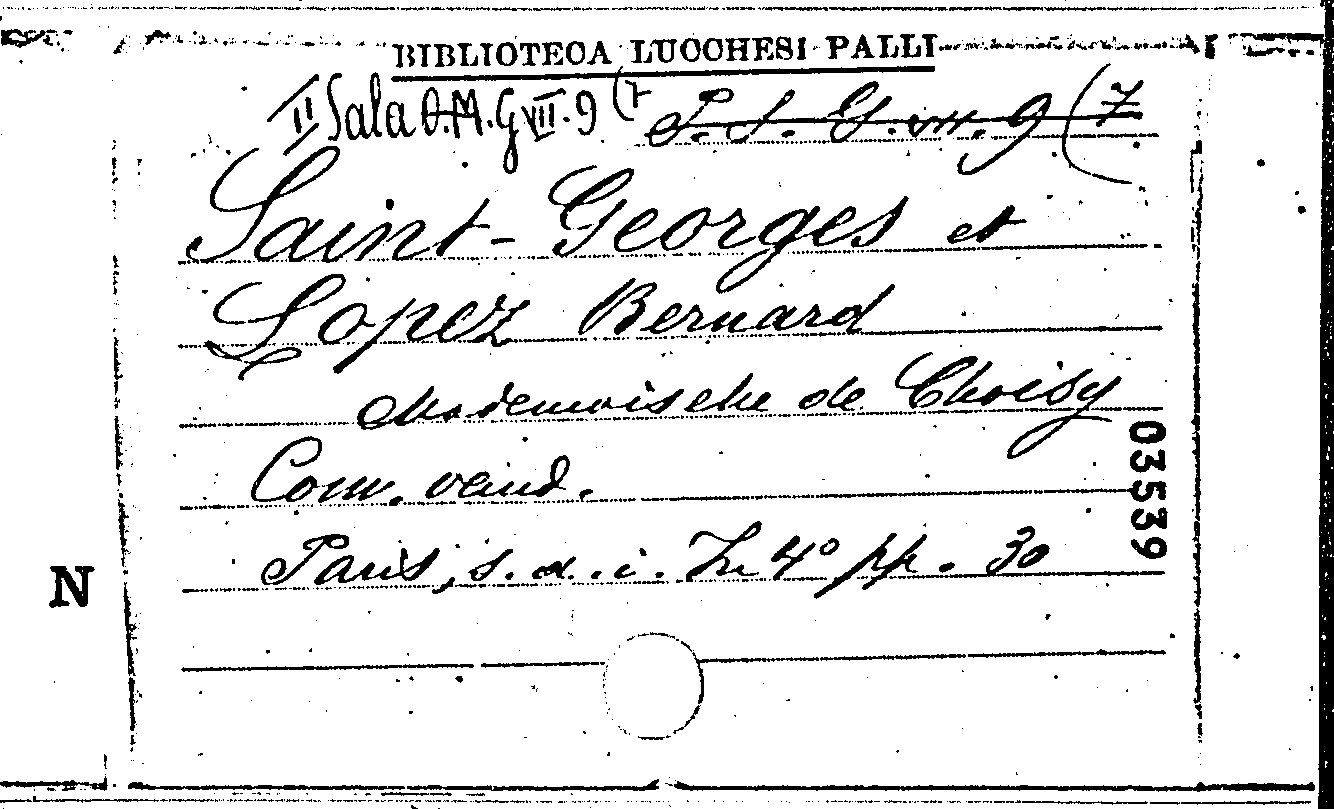 BIBLIOTECA LUCCHESI PALLI
II Sala O.M. G VII. 9 (7 P. S. G. VII. 9 (7
Saint-Georges et
Lopez Bernard
Mademoiselle de Choisy
Com. vaud.
Paris, s. d. i. In 4° pp. 30
03539
N